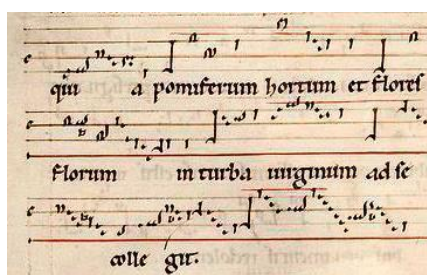 qui a pomiferum hortum et flores
florum in turba virginum ad se
colle git.